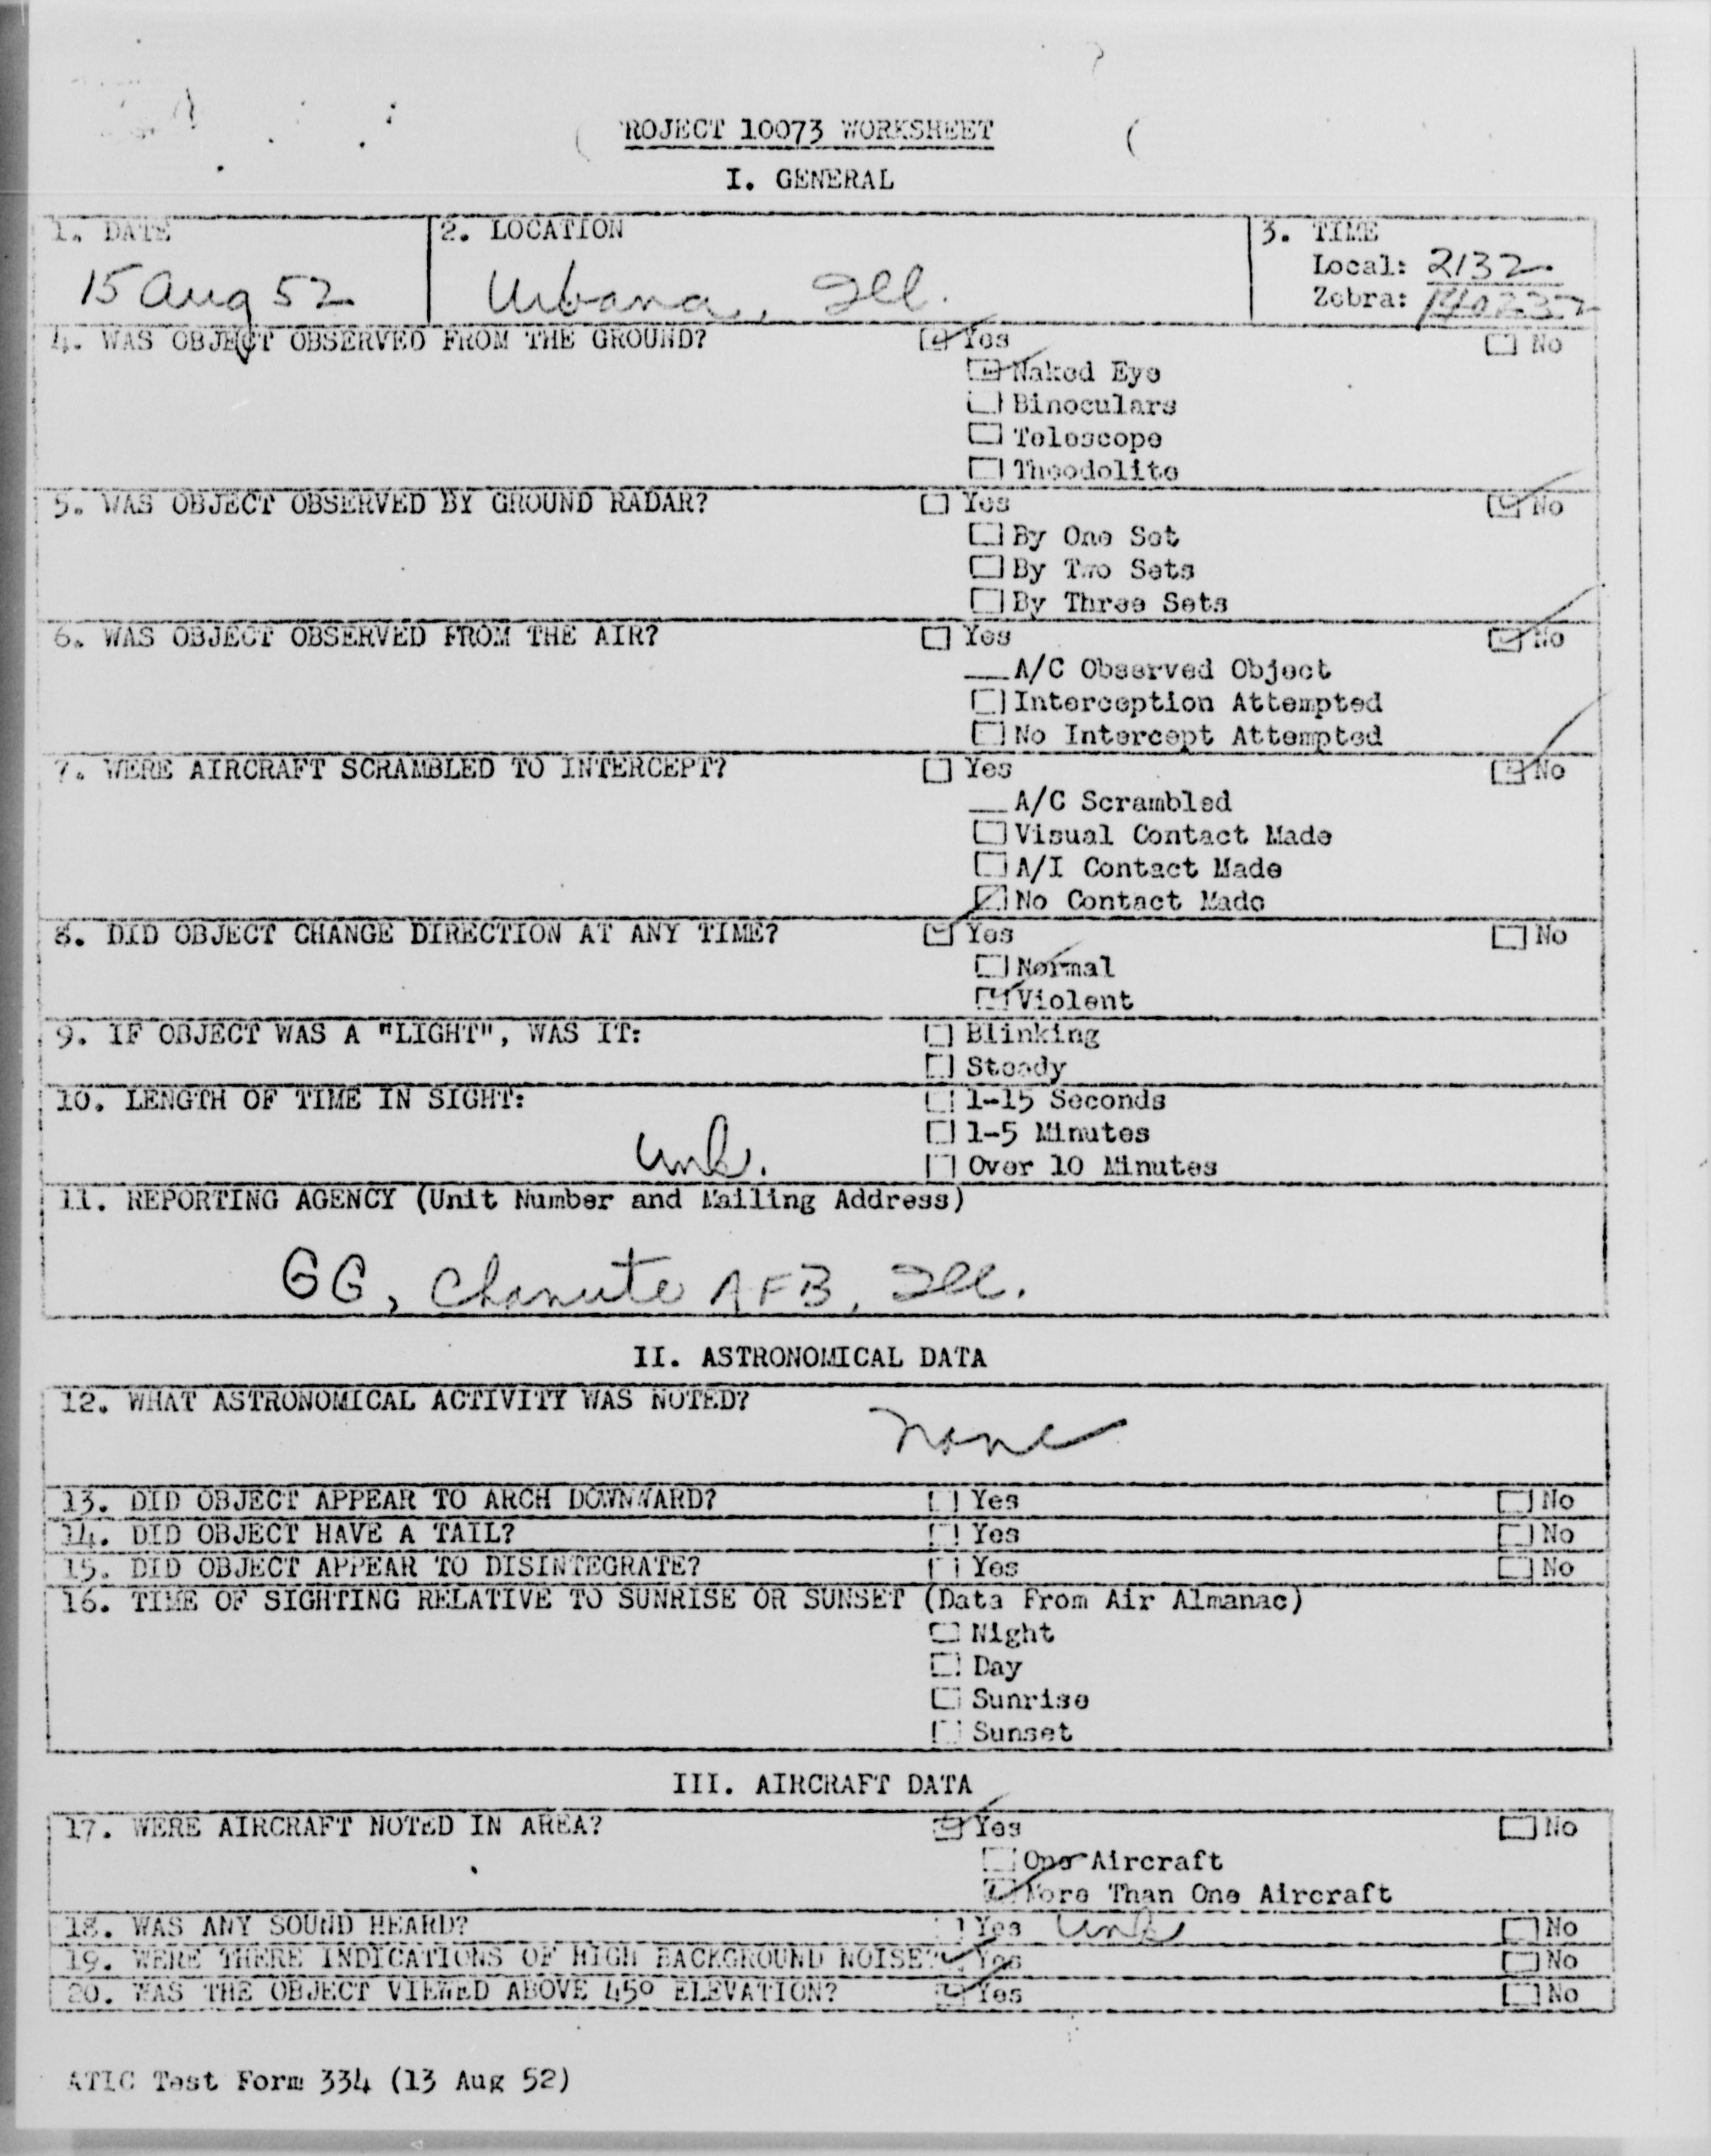 ROJECT 10073 WORKSHEET
I. GENERAL
1. DATE
15 Aug 52
2. LOCATION
Urbana, Ill.
3. TIME
Local: 2132
Zebra:
4. WAS OBJECT OBSERVED FROM THE GROUND?
Yes
No
Naked Eye
Binoculars
Telescope
Theodolite
5. WAS OBJECT OBSERVED BY GROUND RADAR?
Yes
No
By One Set
By Two Sets
By Three Sets
6. WAS OBJECT OBSERVED FROM THE AIR?
Yes
No
A/C Observed Object
Interception Attempted
No Intercept Attempted
7. WERE AIRCRAFT SCRAMBLED TO INTERCEPT?
Yes
No
A/C Scrambled
Visual Contact Made
A/I Contact Made
No Contact Made
8. DID OBJECT CHANGE DIRECTION AT ANY TIME?
Yes
No
Normal
Violent
9. IF OBJECT WAS A "LIGHT", WAS IT:
Blinking
Steady
10. LENGTH OF TIME IN SIGHT:
Unk.
1-15 Seconds
1-5 Minutes
Over 10 Minutes
11. REPORTING AGENCY (Unit Number and Mailing Address)
GG, Chanute AFB, Ill.
II. ASTRONOMICAL DATA
12. WHAT ASTRONOMICAL ACTIVITY WAS NOTED?
None
13. DID OBJECT APPEAR TO ARCH DOWNWARD?
Yes
No
14. DID OBJECT HAVE A TAIL?
Yes
No
15. DID OBJECT APPEAR TO DISINTEGRATE?
Yes
No
16. TIME OF SIGHTING RELATIVE TO SUNRISE OR SUNSET (Data From Air Almanac)
Night
Day
Sunrise
Sunset
III. AIRCRAFT DATA
17. WERE AIRCRAFT NOTED IN AREA?
Yes
No
One Aircraft
More Than One Aircraft
18. WAS ANY SOUND HEARD?
Yes Unk
No
19. WERE THERE INDICATIONS OF HIGH BACKGROUND NOISE?
Yes
No
20. WAS THE OBJECT VIEWED ABOVE 45° ELEVATION?
Yes
No
ATIC Test Form 334 (13 Aug 52)